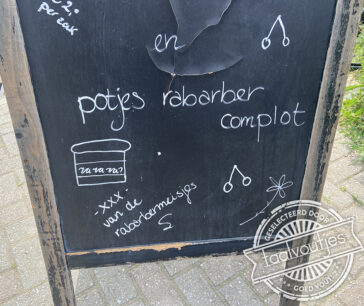 € 2,-
per zak
en
potjes rabarber
complot
ra ra ra?
-xxx-
van de
rabarbermeisjes
GESELECTEERD DOOR
taalvoutjes
GOED VOUT